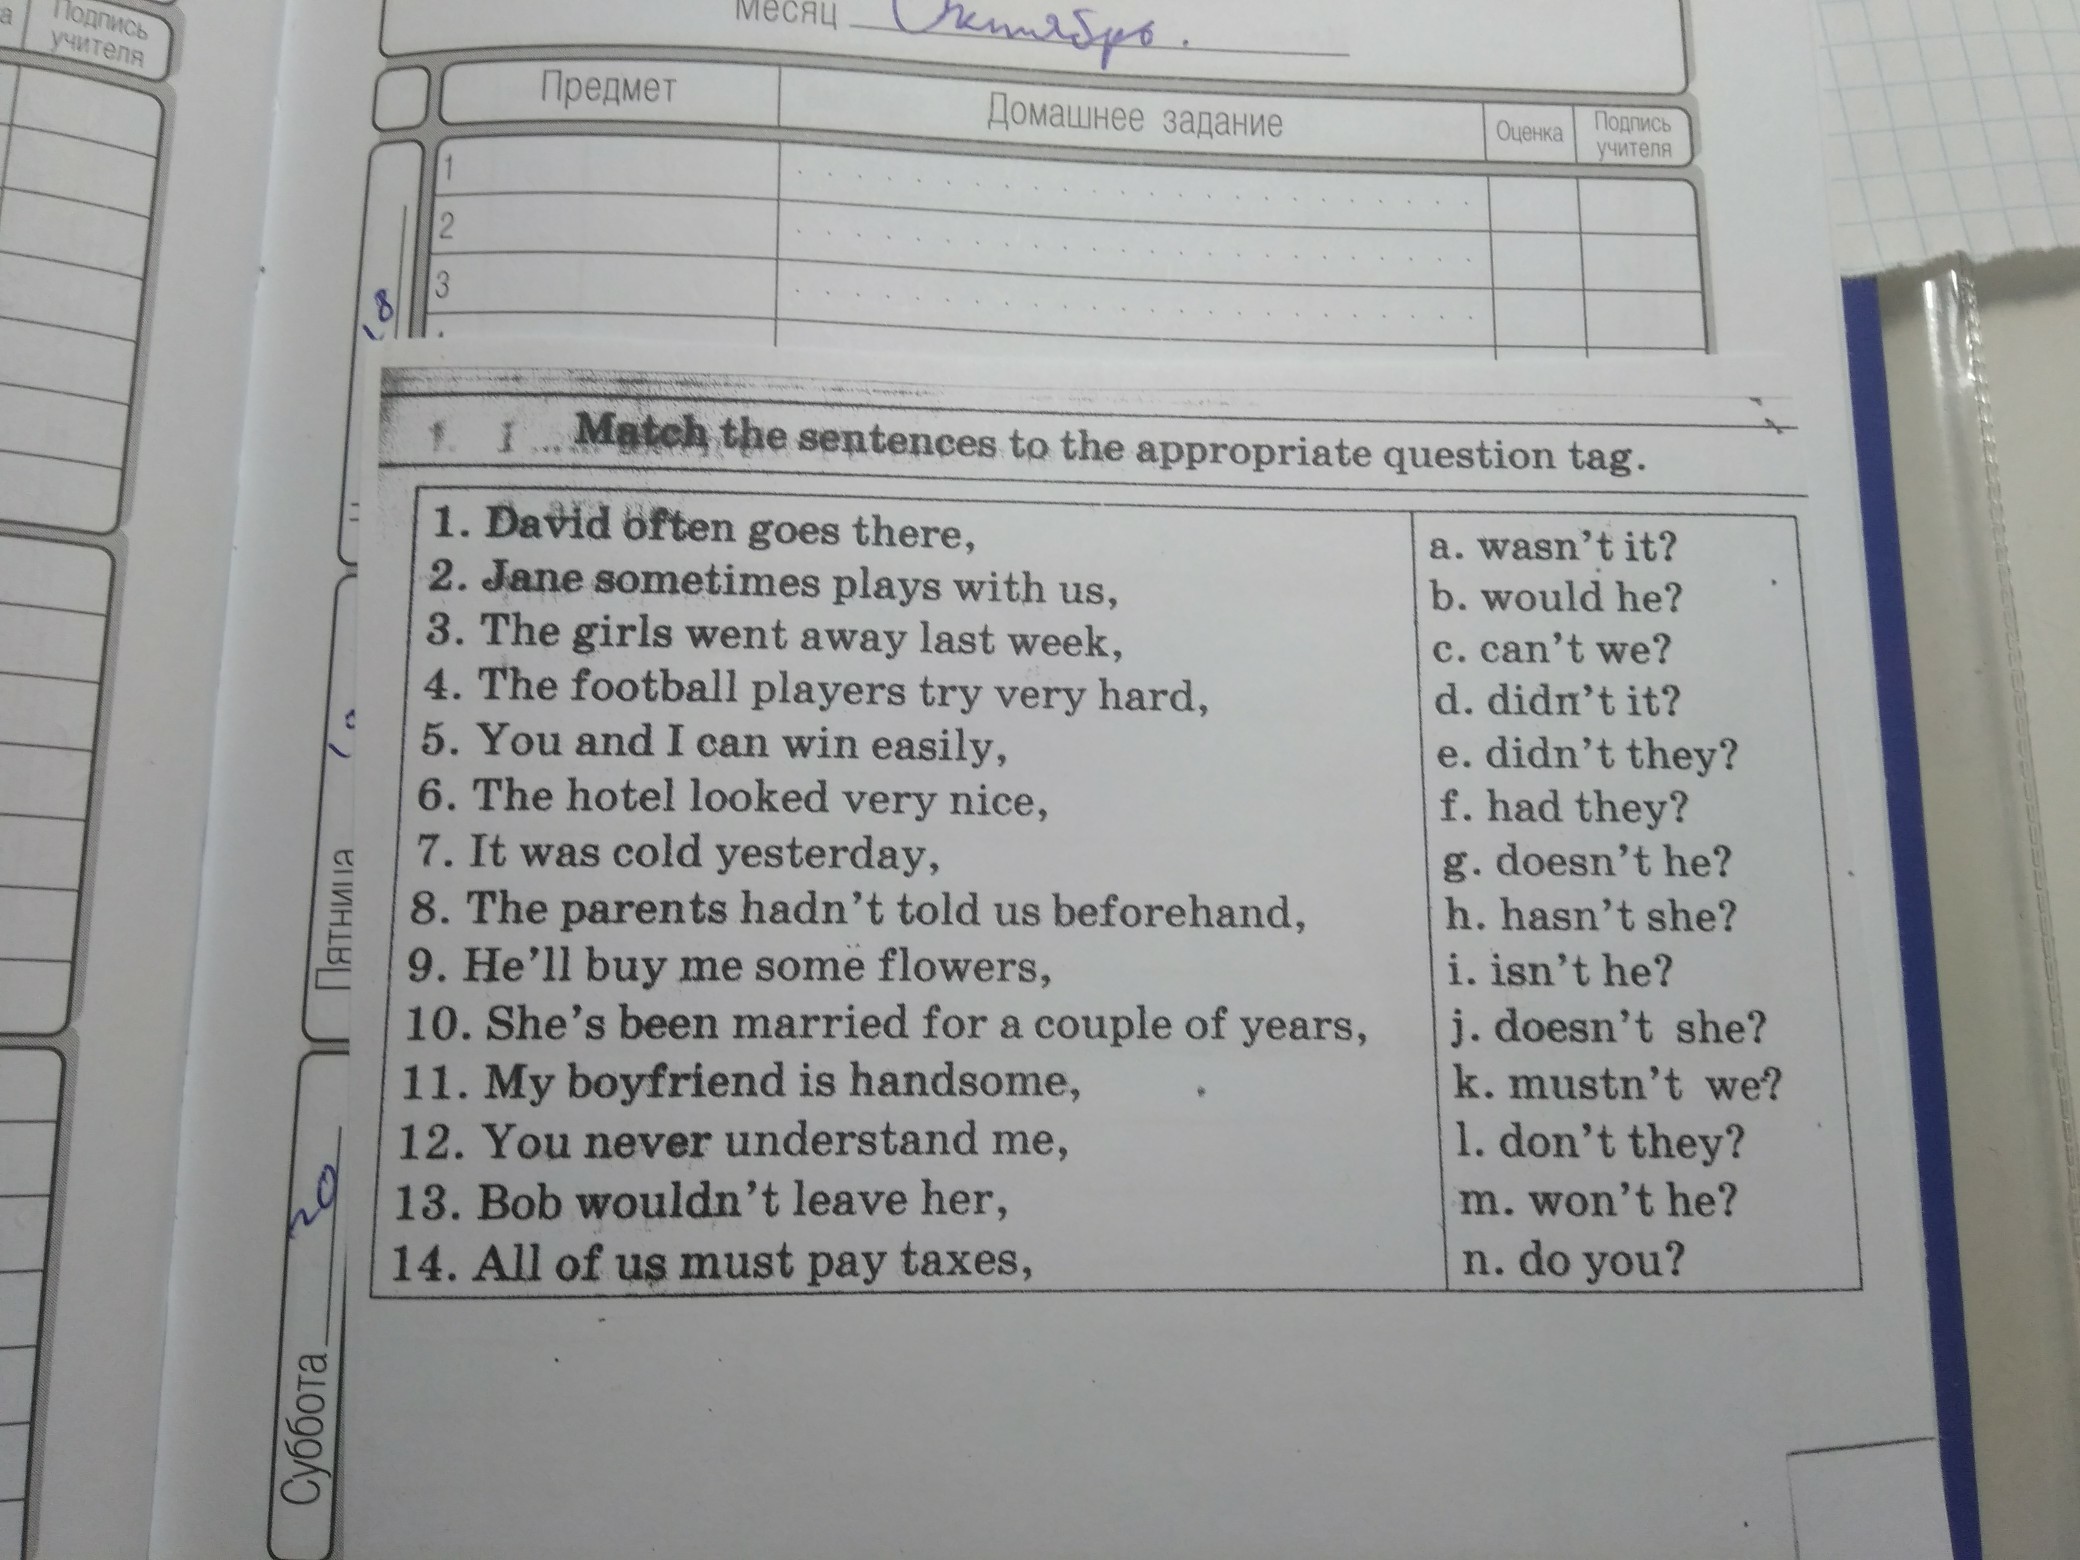 Подпись
учителя
Месяц Октябрь.
Предмет Домашнее задание Оценка Подпись учителя
1
2
3
18
Match the sentences to the appropriate question tag.
1. David often goes there,
2. Jane sometimes plays with us,
3. The girls went away last week,
4. The football players try very hard,
5. You and I can win easily,
6. The hotel looked very nice,
7. It was cold yesterday,
8. The parents hadn't told us beforehand,
9. He'll buy me some flowers,
10. She's been married for a couple of years,
11. My boyfriend is handsome,
12. You never understand me,
13. Bob wouldn't leave her,
14. All of us must pay taxes,
a. wasn't it?
b. would he?
c. can't we?
d. didn't it?
e. didn't they?
f. had they?
g. doesn't he?
h. hasn't she?
i. isn't he?
j. doesn't she?
k. mustn't we?
l. don't they?
m. won't he?
n. do you?
Пятница
Суббота 20